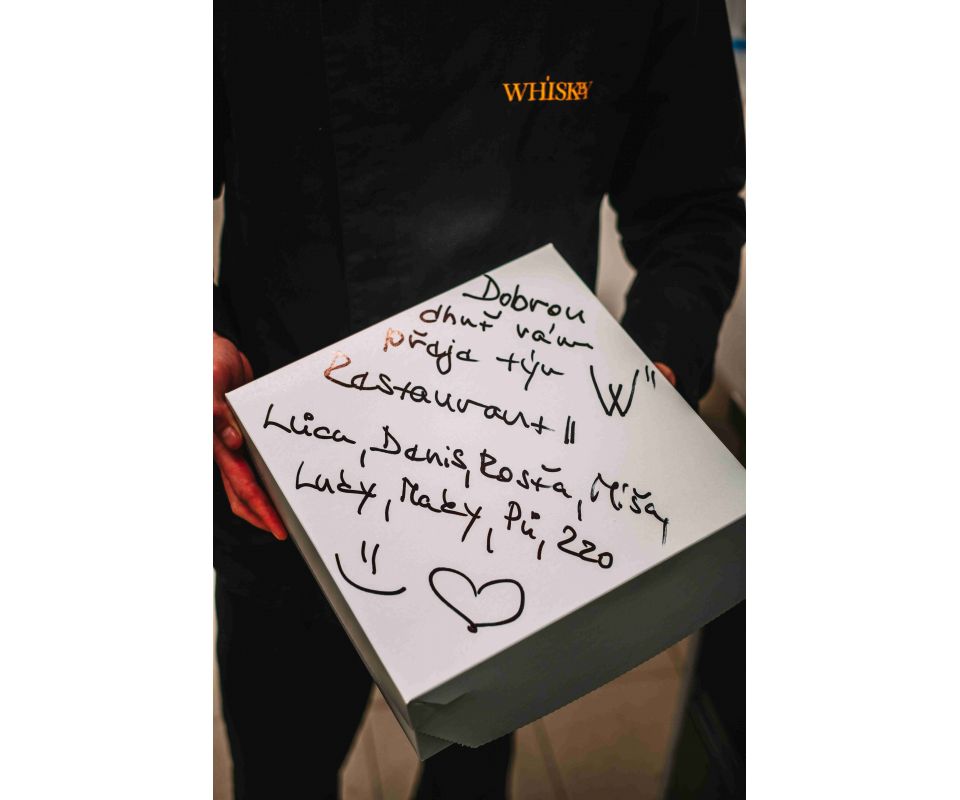 WHISKEY
Dobrou
chuť vám
přeje tým
Restaurant W"
Lůca, Denis, Rosťa, Míša,
Lucky, Macky, Pů, Zzo